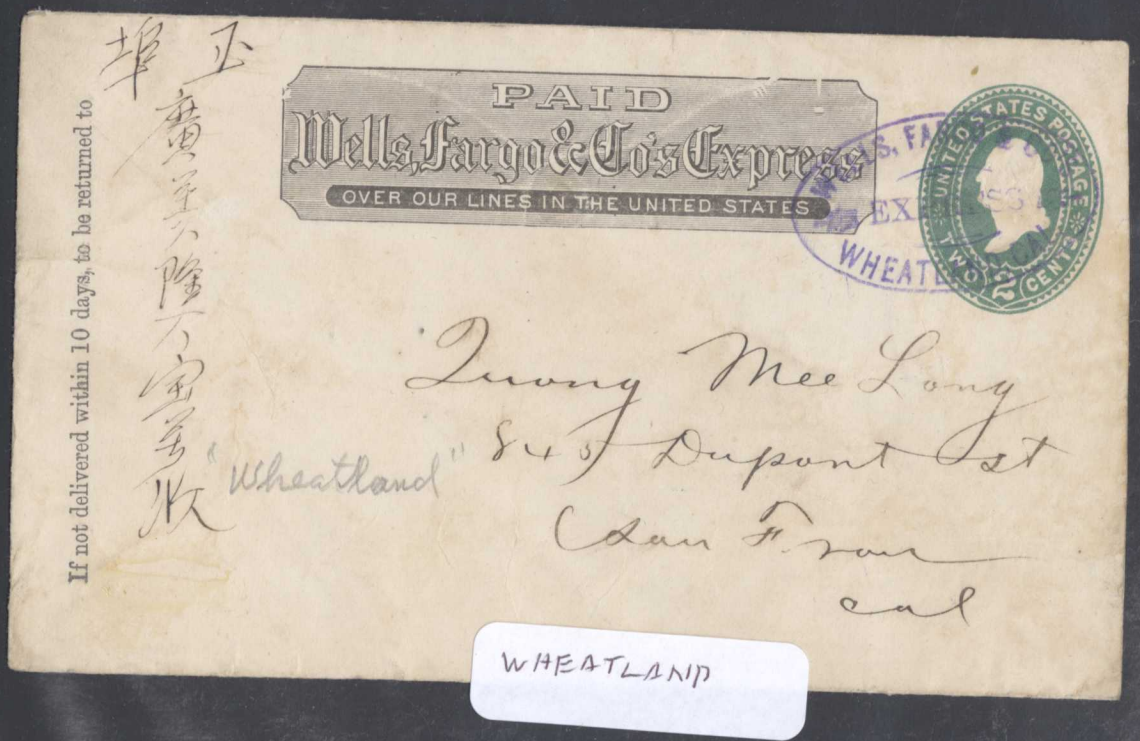 If not delivered within 10 days, to be returned to
埠
廣美隆大寶號收
PAID
Wells, Fargo & Co's Express
OVER OUR LINES IN THE UNITED STATES
WELLS, FARGO & CO
EXPRESS
WHEATLAND, CAL
UNITED STATES POSTAGE
TWO 2 CENTS
Quong Mee Long
845 Dupont st
San Fran
cal
"Wheatland"
WHEATLAND